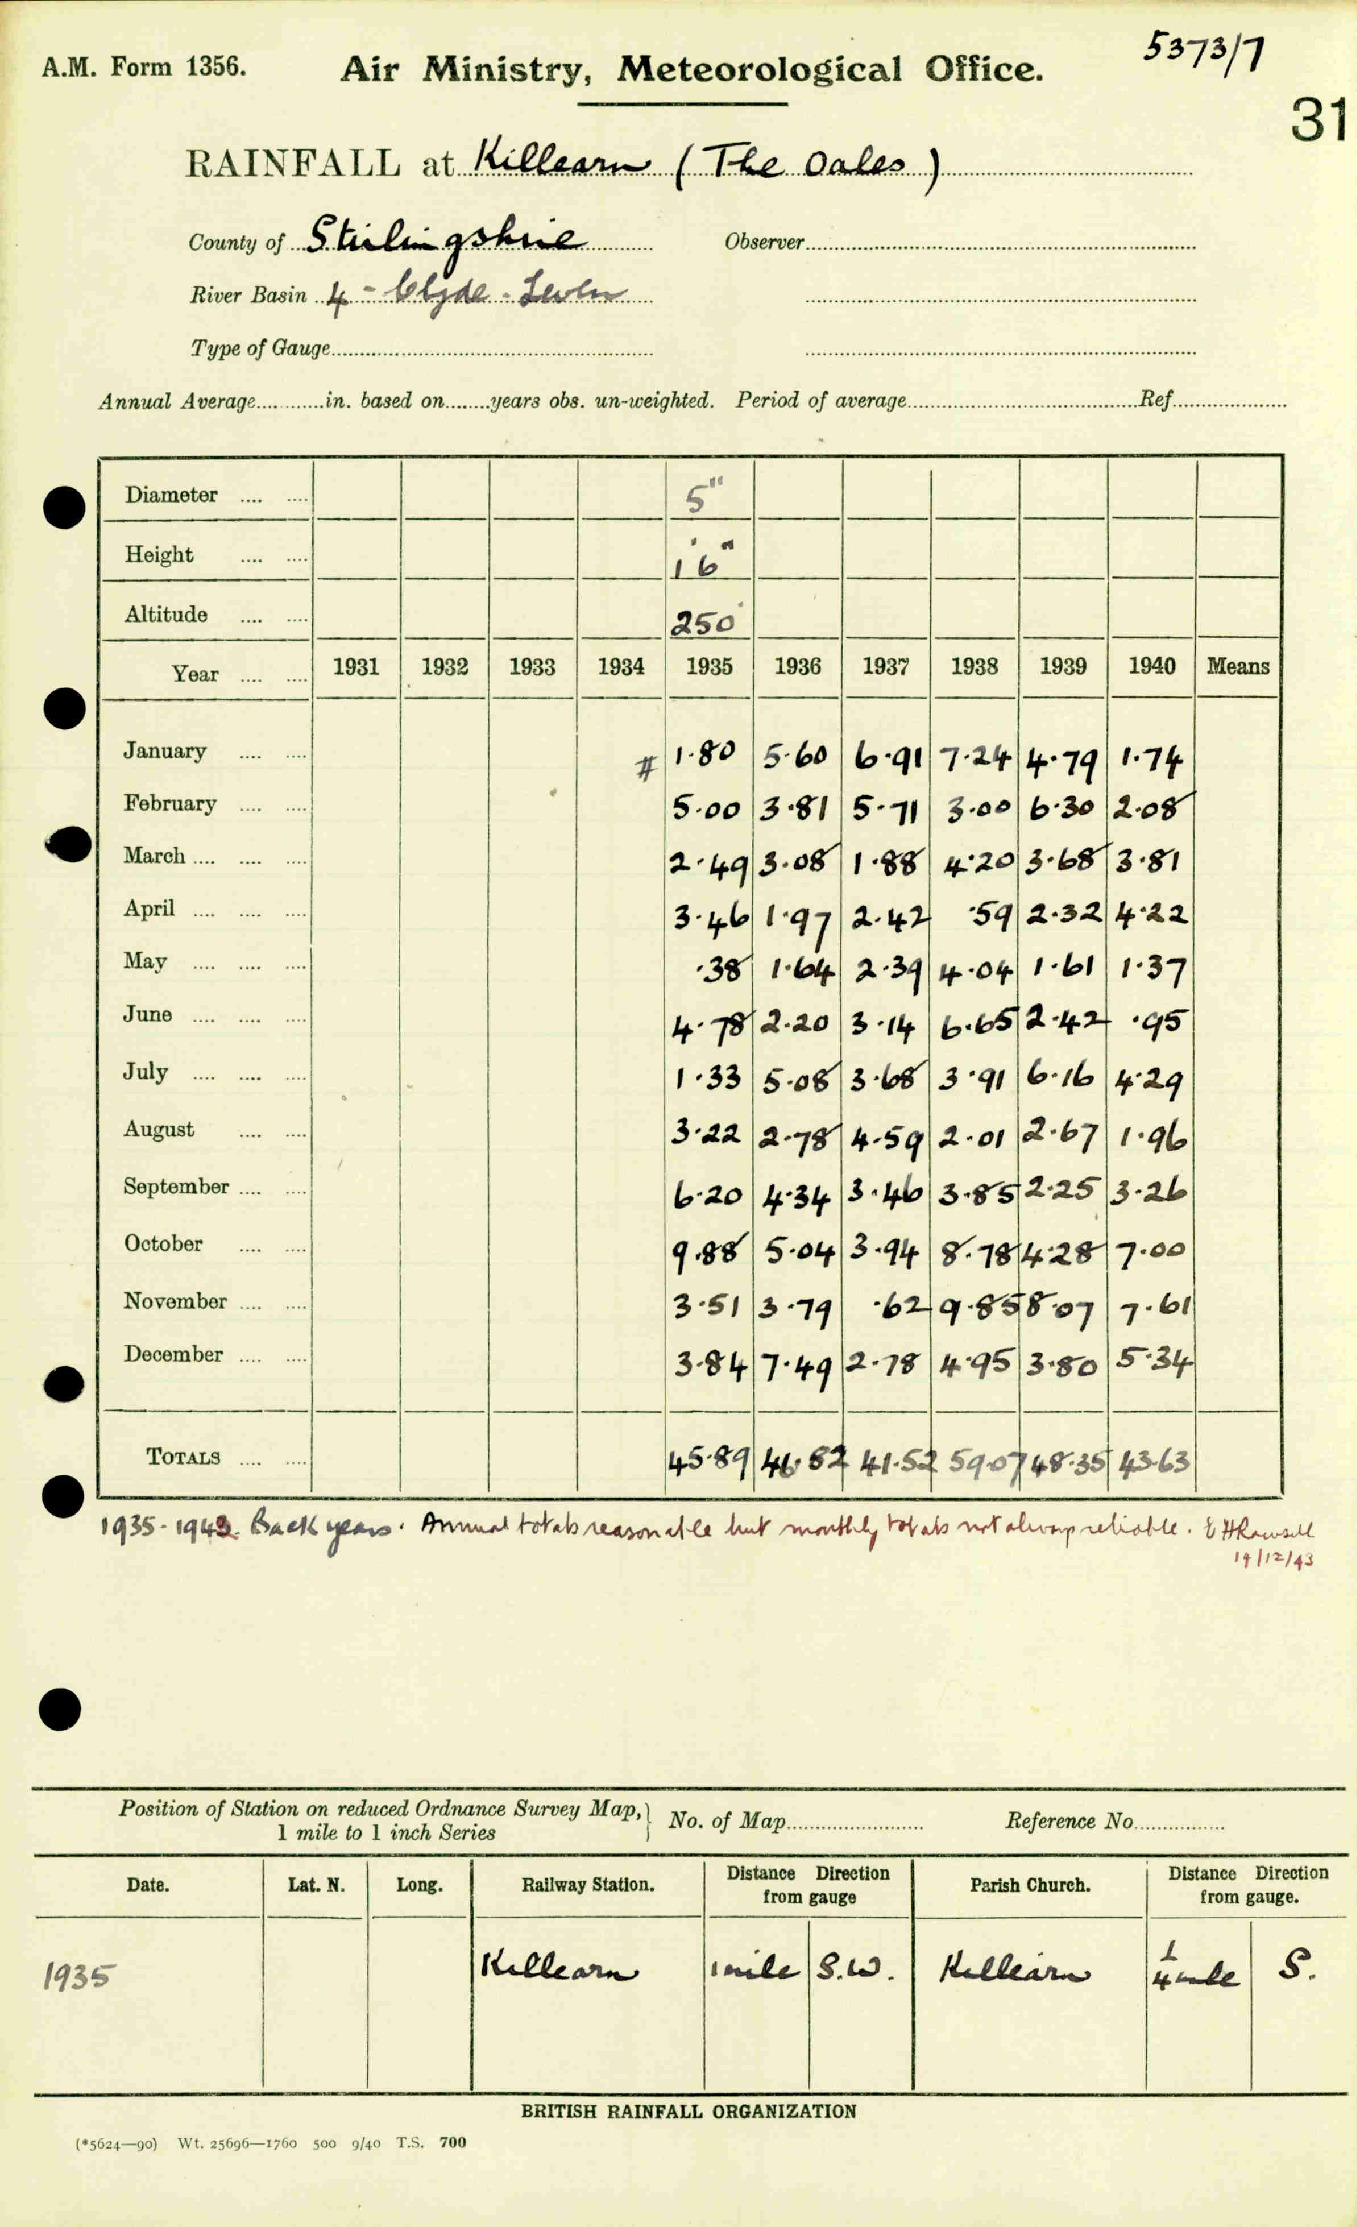 5373/7
A.M. Form 1356. Air Ministry, Meteorological Office.
31
RAINFALL at Killearn (The Oaks)
County of Stirlingshire Observer
River Basin 4 - Clyde - Leven
Type of Gauge
Annual Average in. based on years obs. un-weighted. Period of average Ref
Diameter 5"
Height 1' 6"
Altitude 250'
Year 1931 1932 1933 1934 1935 1936 1937 1938 1939 1940 Means
January # 1.80 5.60 6.91 7.24 4.79 1.74
February 5.00 3.81 5.71 3.00 6.30 2.08
March 2.49 3.08 1.88 4.20 3.68 3.81
April 3.46 1.97 2.42 .59 2.32 4.22
May .38 1.64 2.39 4.04 1.61 1.37
June 4.78 2.20 3.14 6.65 2.42 .95
July 1.33 5.08 3.68 3.91 6.16 4.29
August 3.22 2.78 4.59 2.01 2.67 1.96
September 6.20 4.34 3.46 3.85 2.25 3.26
October 9.88 5.04 3.94 8.78 4.28 7.00
November 3.51 3.79 .62 9.85 8.07 7.61
December 3.84 7.49 2.78 4.95 3.80 5.34
TOTALS 45.89 46.82 41.52 59.07 48.35 43.63
1935-1942 Back years. Annual totals reasonable but monthly totals not always reliable.
14/12/43
Position of Station on reduced Ordnance Survey Map, No. of Map Reference No.
1 mile to 1 inch Series
Date. Lat. N. Long. Railway Station. Distance Direction from gauge Parish Church. Distance Direction from gauge.
1935 Killearn 1 mile S.W. Killearn 1/4 mile S.
BRITISH RAINFALL ORGANIZATION
(*5624—90) Wt. 25696—1760 500 9/40 T.S. 700